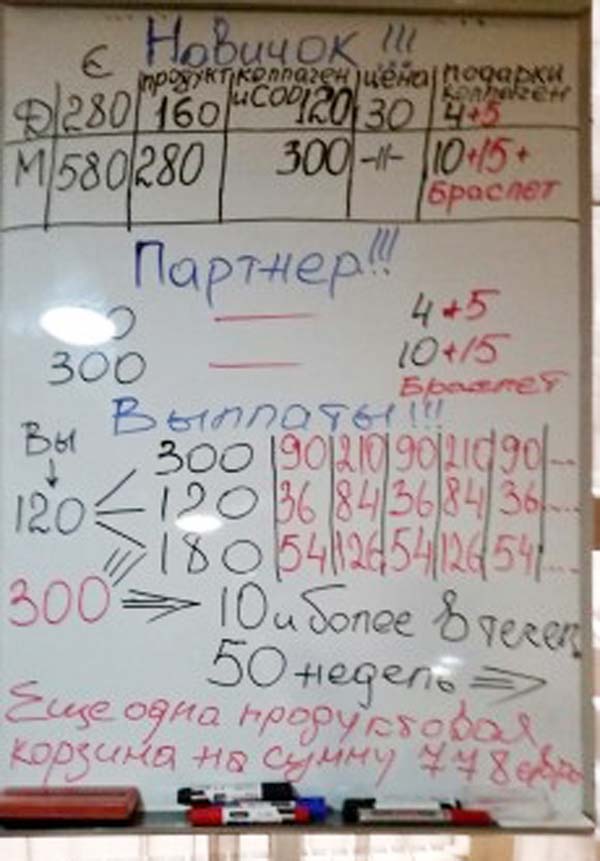 Новичок !!!
Є продукт коллаген и СОД цена подарки коллаген
Д 280 160 120 30 4+5
М 580 280 300 -//- 10+15+
браслет
Партнер!!!
0 — 4+5
300 — 10+15
браслет
Выплаты!!!
Вы
300 90 210 90 210 90 ...
120 120 36 84 36 84 36 ....
180 54 126 54 126 54 ....
300 ⇒ 10 и более в течен
50 недель ⇒
Еще одна продуктовая
корзина на сумму 778 евро